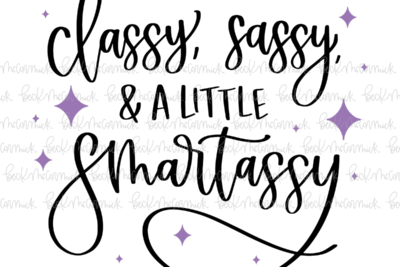 classy, sassy,
& A LITTLE
smartassy